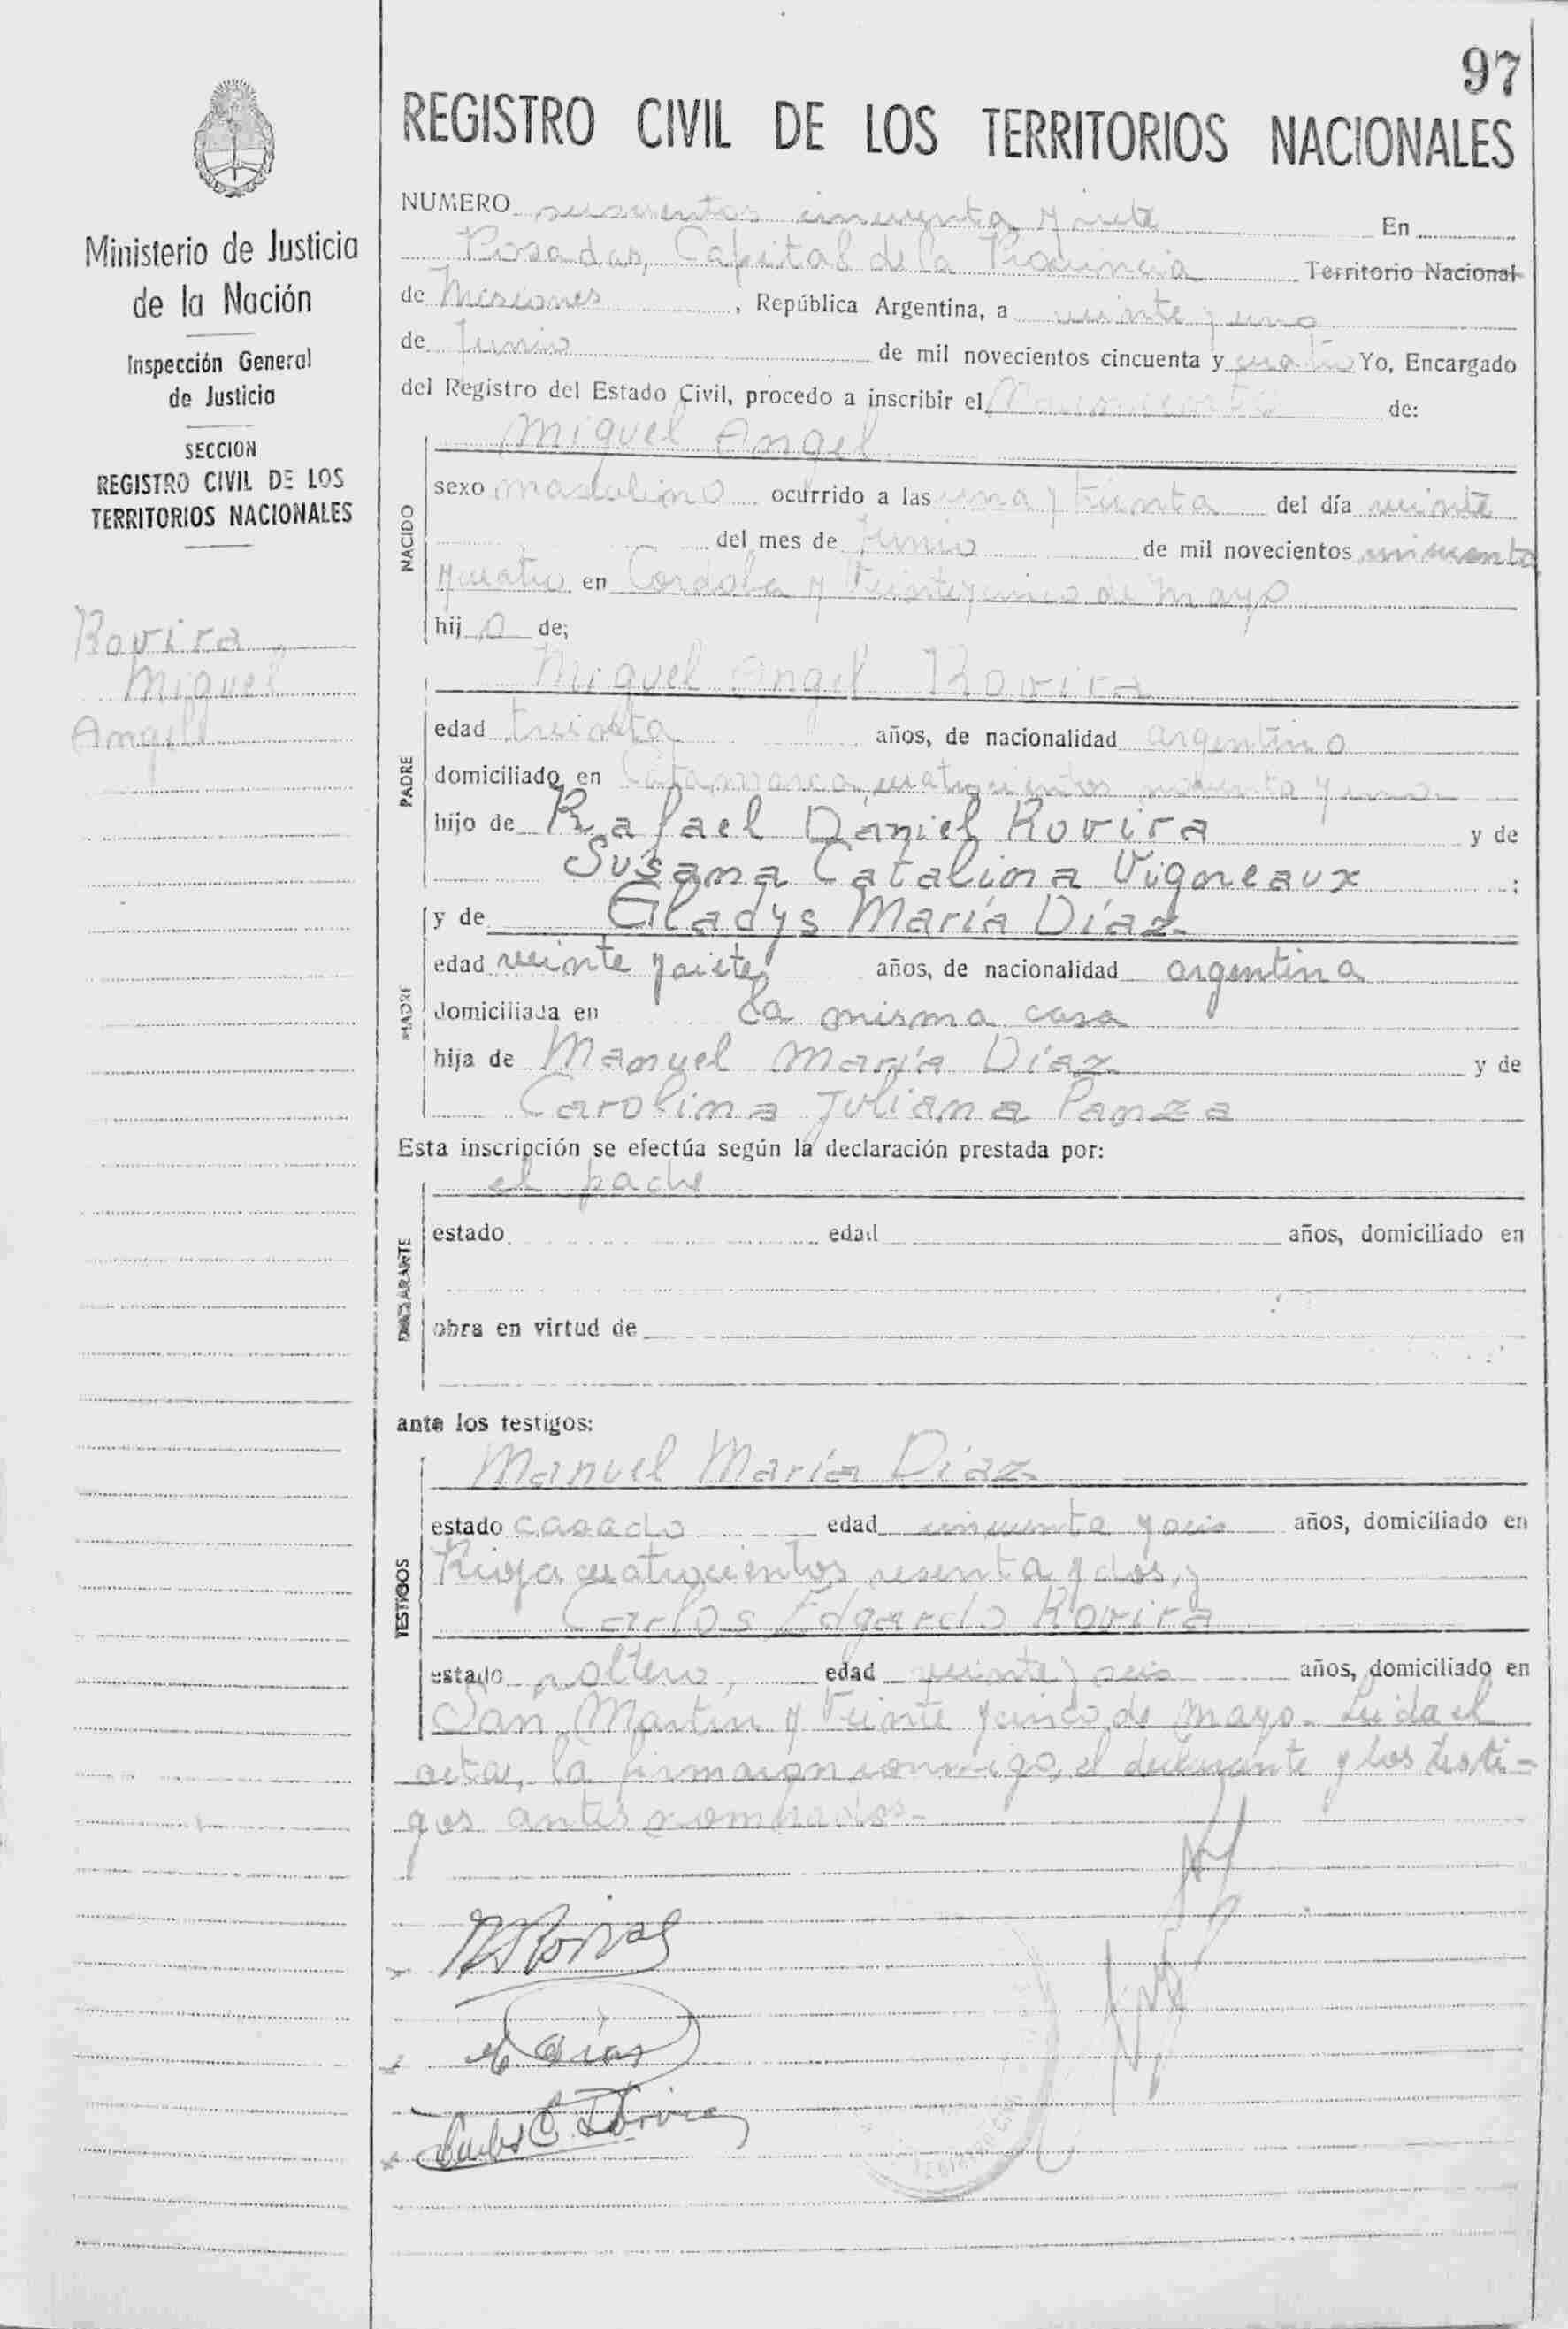 97
REGISTRO CIVIL DE LOS TERRITORIOS NACIONALES
Ministerio de Justicia
de la Nación
Inspección General
de Justicia
SECCION
REGISTRO CIVIL DE LOS
TERRITORIOS NACIONALES
Rovira
Miguel
Angel
NUMERO cincuenta y siete En
Posadas, Capital de la Provincia Territorio Nacional
de Misiones, República Argentina, a veinte y uno
de Junio de mil novecientos cincuenta y cuatro Yo, Encargado
del Registro del Estado Civil, procedo a inscribir el Nacimiento de:
Miguel Angel
NACIDO
sexo masculino ocurrido a las una y treinta del día veinte
del mes de Junio de mil novecientos cincuenta
y cuatro en Cordoba y Veinte y cinco de Mayo
hijo de;
Miguel Angel Rovira
PADRE
edad treinta años, de nacionalidad argentino
domiciliado en Catamarca cuatrocientos noventa y uno
hijo de Rafael Daniel Rovira y de
Susana Catalina Vigneaux ;
y de Gladys María Díaz
MADRE
edad veinte y siete años, de nacionalidad argentina
domiciliada en la misma casa
hija de Manuel María Díaz y de
Carolina Juliana Panza
Esta inscripción se efectúa según la declaración prestada por:
el padre
DECLARANTE
estado edad años, domiciliado en
obra en virtud de
ante los testigos:
Manuel María Díaz
TESTIGOS
estado casado edad cincuenta y seis años, domiciliado en
Rioja cuatrocientos sesenta y dos, y
Carlos Edgardo Rovira
estado soltero, edad veinte y seis años, domiciliado en
San Martin y Veinte y cinco de Mayo. Leida el
acta, la firmaron conmigo, el declarante y los testi-
gos antes nombrados.-
M Diaz
Carlos E. Rovira